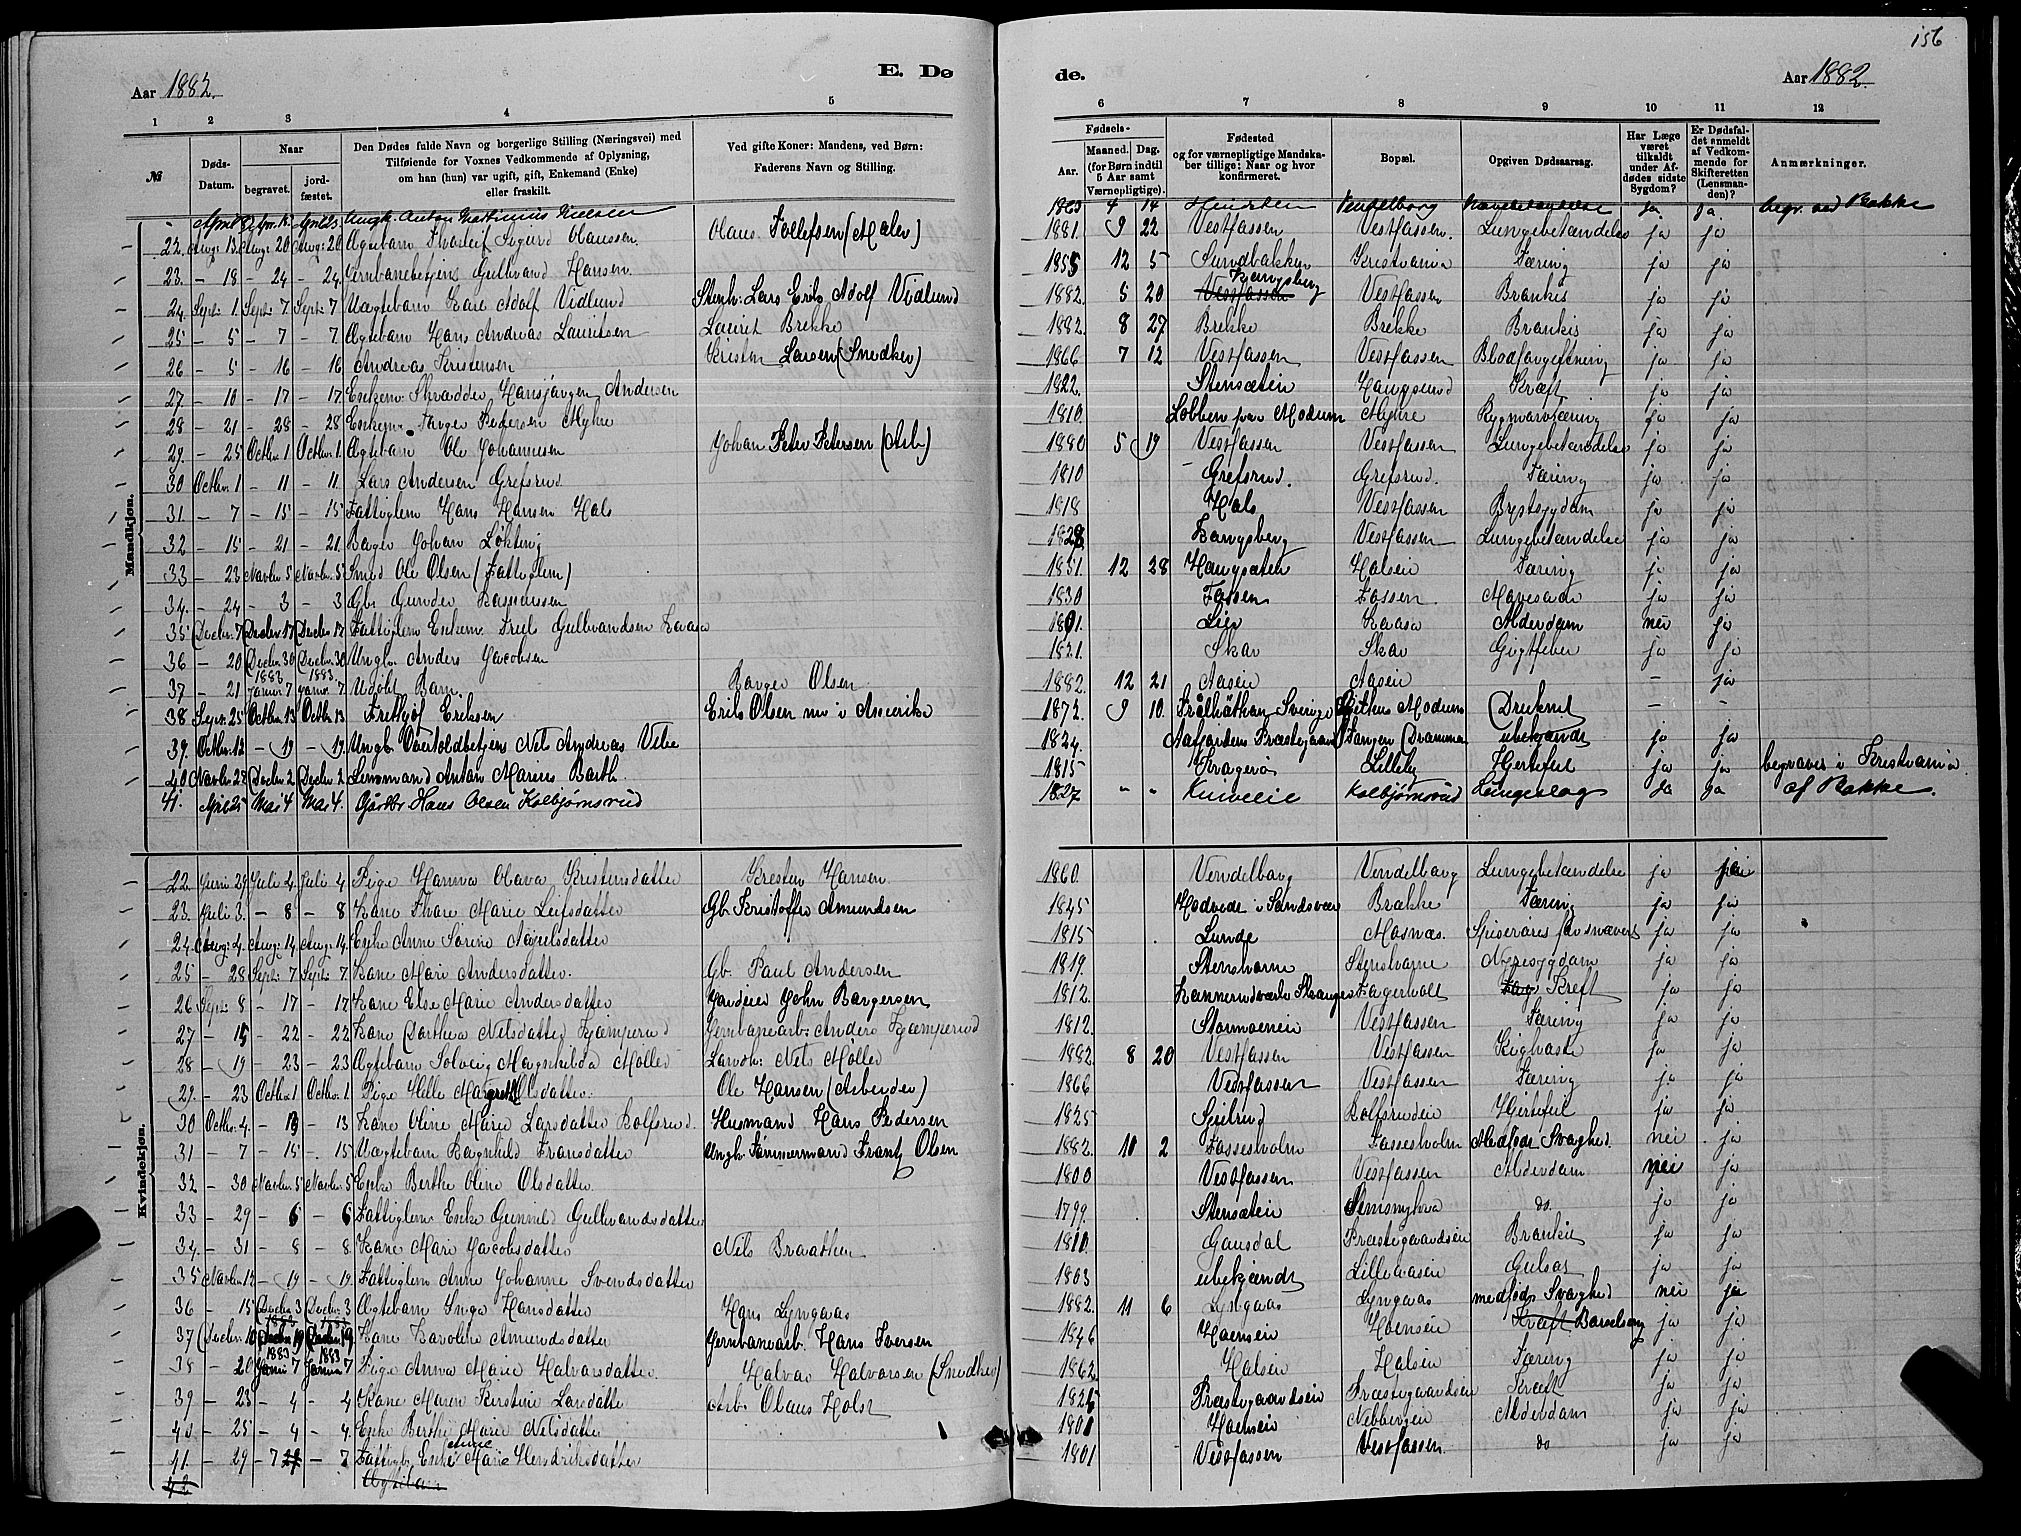 156
Aar 1882.
E. Dø
de.
Aar 1882.
1 2 3 4 5 6 7 8 9 10 11 12
№
Døds-Datum.
Naar
begravet.
jord-fæstet.
Den Dødes fulde Navn og borgerlige Stilling (Næringsvei) med
Tilføiende for Voxnes Vedkommende af Oplysning,
om han (hun) var ugift, gift, Enkemand (Enke)
eller fraskilt.
Ved gifte Koner: Mandens, ved Børn:
Faderens Navn og Stilling.
Fødsels-
Aar.
Maaned.
Dag.
(for Børn indtil
5 Aar samt
Værnepligtige).
Fødested
og for værnepligtige Mandska-
ber tillige: Naar og hvor
konfirmeret.
Bopæl.
Opgiven Dødsaarsag.
Har Læge
været
tilkaldt
under Af-
dødes sidste
Sygdom?
Er Dødsfal-
det anmeldt
af Vedkom-
mende for
Skifteretten
(Lensman-
den)?
Anmærkninger.
Mandkjøn.
Ungk. Anton Mathinius Nielsen 1863 4 14 Vendelborg ja ja begr. ved Bakke
22. Aug. 13 Aug. 20 Aug. 20 Ægtebarn Thorleif Sigurd Olaussen Olaus Tollefsen (Maler) 1881. 9 22 Vestfossen Vestfossen. Lungebetændelse ja ja
23. - 18 - 24 - 24. Jernbanebetjent Gulbrand Hansen 1855 12 5 Sundbakken Kristiania Tæring ja ja
24 Septr. 1. Septr. 7 Septr. 7 Uægtebarn Karl Adolf Vidlund Stenh. Lars Erik Adolf Vidlund 1882. 5 20 Kongsberg Vestfossen Bronkit ja ja
25 - 5 - 7 - 7. Ægtebarn Hans Andreas Lauritsen Laurits Brekke 1882. 8 27 Brekke Brekke Bronkit ja ja
26 - 5 - 16 - 16 Andreas Kristensen Kristen Larsen (Snedker) 1866 7 12 Vestfossen Vestfossen Blodforgiftning ja ja
27. - 10 - 17 - 17. Enkem. Skrædder Hansjørgen Andersen 1822. Stensæteie Haugsund Kræft ja ja
28 - 21 - 28 - 28 Enkem. Torger Pedersen Myhre 1810. Lobben paa Modum Myhre Rygmarvstæring ja ja
29. - 25 Octbr. 1 Octbr. 1. Ægtebarn Ole Johannesen Johan Peter Petersen (Arb) 1880 5 19 Vestfossen Vestfossen Lungebetændelse ja ja
30 Octbr. 1 - 11 - 11. Lars Andersen Grefsrud 1810 Grefsrud. Grefsrud. Tæring ja ja
31. - 7 - 15 - 15 Fattiglem Hans Hansen Hals 1818 Hals Vestfossen Brystsygdom ja ja
32 - 15 - 21 - 21. Bager Johan Løkting 1828 Kongsberg Vestfossen Lungebetændelse ja ja
33. - 23 Novbr. 5 Novbr. 5 Smed Ole Olsen (Fattiglem) 1851. 12 28 Haugsæteie Halseie Tæring ja ja
34. - 24 - 3 - 3 Gbr. Gunder Rasmussen 1830 Fossen Fossen. Mavesaar ja ja
35 Decbr. 7 Decbr. 17 Decbr. 17 Fattiglem Enkem. Truls Gulbrandsen Kaasa 1801. Lier Kaasa Alderdom nei ja
36 - 20 Decbr. 30 Decbr. 30 Ungk. Anders Jacobsen 1821. Skar Skar Gigtfeber ja ja
37 - 21 1883 Januar 7 1883. Januar 7 Udøbt Barn. Borger Olsen 1882. 12 21 Aaseie Aaseie - ja
38 Septr. 25 Octbr. 13 Octbr. 13 Fritjof Eriksen Erik Olsen nu i Amerika 1872. 9 10. Trolhättan Sverige Modum Druknet - -
39. Octbr. 12 - 19 - 19. Ungk. Overtoldbetjent Nils Andreas Vibe 1824. Aafjordens Præstegjæld Tangen (Drammen) ubekjendt ja ja
40 Novbr. 28 Decbr. 2 Decbr. 2 Lensmand Anton Marius Barth. 1815 Kragerø Lilleby Hjertefeil ja ja begraves i Kristiania
41. April 25 Mai 4 Mai 4. Gårdbr. Hans Olsen Kolbjørnsrud 1827 " " Kolbjørnsrud Lungeslag Ja Ja af Bakke.
Kvindekjøn.
22. Juni 29 Juli 4. Juli 4 Pige Hanna Olava Kristensdatter Kresten Hansen 1860. Vendelborg Vendelborg Lungebetændelse ja ja
23. Juli 3. - 8 - 8 Kone Thora Marie Leifsdatter Gb. Kristoffer Amundsen 1845 Hedvede i Sandsvær Brække Tæring ja ja
24. Aug. 4. Aug. 14 Aug. 14. Enke Anne Sørine Nielsdatter 1815 Lunde Masnæs. Spiserørets forsnævret ja ja
25 - 28 Septr. 7 Septr. 7. Kone Mari Andersdatter. Gb. Paul Andersen 1819. Stenshorne Stenshorne Nyresygdom ja ja
26 Septr. 8 - 17 - 17 Kone Else Marie Andersdatter Gaardeier John Borgersen 1812. Fagerholt Kreft ja ja
27 - 15 - 22 - 22 Kone Dorthea Nilsdatter Kjæmperud Jernbanearb. Anders Kjæmperud 1812. Stormoeneie Vestfossen Tæring ja ja
28 - 19 - 23 - 23 Ægtebarn Solveig Magnhilda Møller Nils Møller 1882 8 20 Vestfossen Vestfossen Kighoste ja ja
29. - 23 Octbr. 1 Octbr. 1. Pige Hilla Margrethe Olsdatter. Ole Hansen (Arbeider) 1866 Vestfossen Vestfossen Tæring ja ja
30 Octbr. 4. - 13 - 13 Kone Oline Marie Larsdatter Rolfsrud. Husmand Hans Pedersen 1825 Spilrud Rolfsrudeie Hjertefeil ja ja
31 - 7 - 15 - 15 Uægtebarn Ragnhild Fransdatter Ungk. Tømmermand Frantz Olsen 1882. 10 2 Fossesholm Fossesholm Medfødt Svaghed. nei ja
32 - 30 Novbr. 5 Novbr. 5 Enke Berthe Oline Olsdatter. 1800 Vestfossen Vestfossen Alderdom nei ja
33 - 29 - 6 - 6 Fattiglem Enke Gunnild Gulbrandsdatter 1799. Stensæteie do. ja ja
34. - 31 - 8 - 8. Kone Mari Jacobsdatter Nils Braathen 1810. Gausdal Præstegaardseie Bronkit ja ja
35 Novbr. 12 - 19 - 19. Fattiglem Anne Johanne Svendsdatter 1803 ubekjendt Lilleaaseie Gulsot ja ja
36 - 15 Decbr. 3 Decbr. 3 Ægtebarn Inga Hansdatter Hans Lyngaas 1882. 11 6 Lyngaas Lyngaas medfødt Svaghed nei ja
37 Decbr. 10 Decbr. 19 Decbr. 19 Kone Karoline Amundsdatter Jernbanearb. Hans Iversen 1846 Hoenseie Hoenseie Barselseng ja ja
38 - 20 1883 Januar 7 1883 Januar 7 Pige Anna Marie Halvorsdatter. Halvor Halvorsen (Snedker) 1862 Halseie Halseie Tæring ja ja
39 - 23 - 4 - 4 Kone Maren Kirstine Larsdatter Arb. Olaus Holst 1826 Præstegaardseie Præstegaardseie Kræft ja ja
40 - 25 - 4 - 4. Enke Berthe Marie Nilsdatter 1801 Hoenseie Nebbergeie Alderdom ja ja
41. - 29 - 7 - 7 Fattigl. Enke Anne Marie Hendriksdatter 1801 Vestfossen Vestfossen do ja ja
42